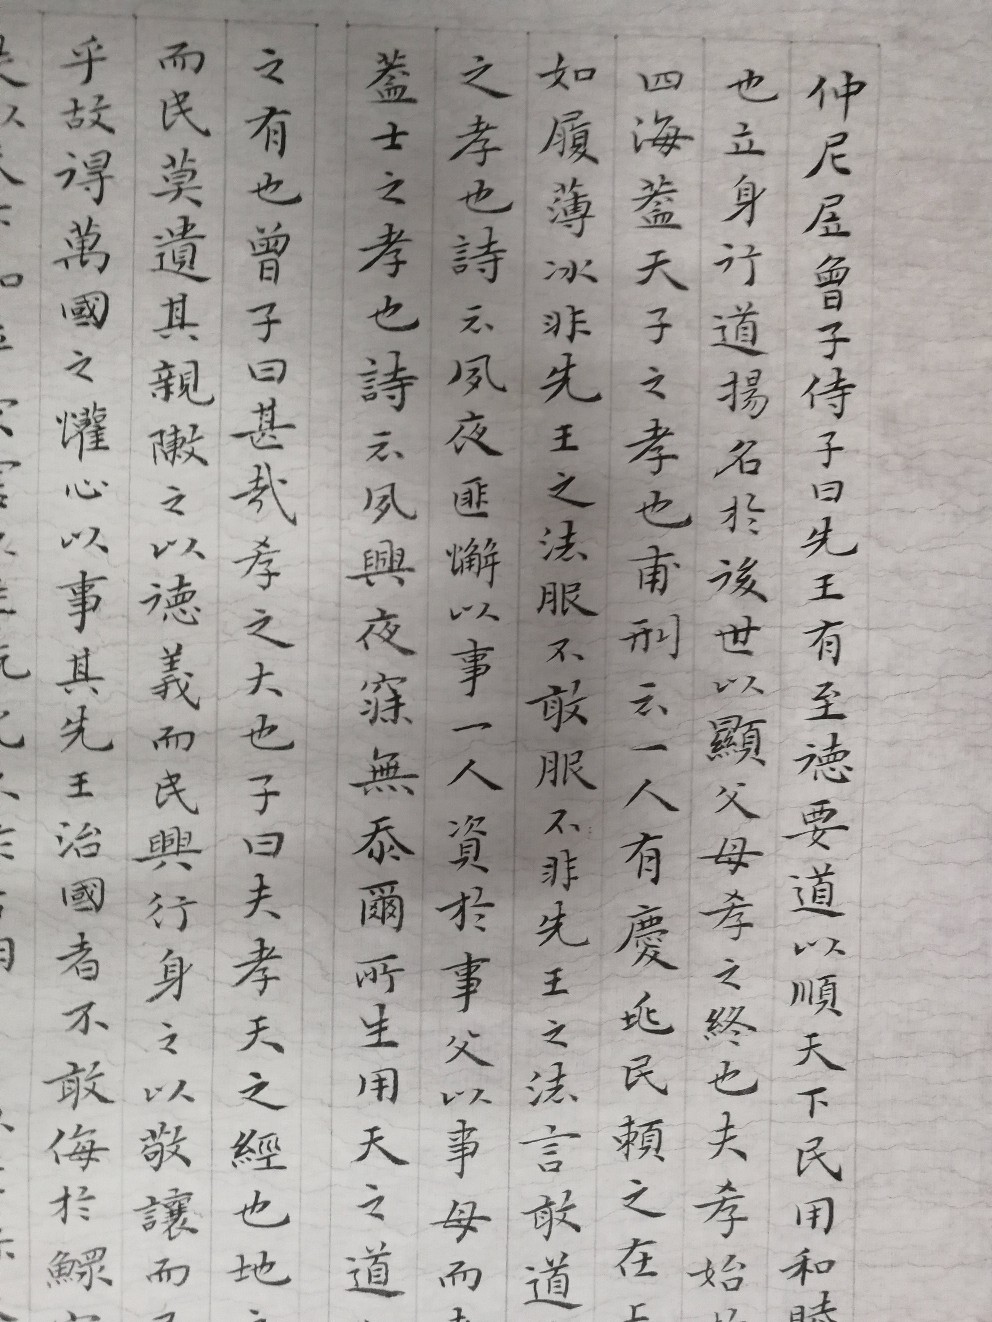 仲尼居曾子侍子曰先王有至德要道以順天下民用和睦
也立身行道揚名於後世以顯父母孝之終也夫孝始
四海蓋天子之孝也甫刑云一人有慶兆民賴之在
如履薄冰非先王之法服不敢服不非先王之法言敢道
之孝也詩云夙夜匪懈以事一人資於事父以事母而
蓋士之孝也詩云夙興夜寐無忝爾所生用天之道
之有也曾子曰甚哉孝之大也子曰夫孝天之經也地
而民莫遺其親陳之以德義而民興行身之以敬讓而
乎故得萬國之懽心以事其先王治國者不敢侮於鰥